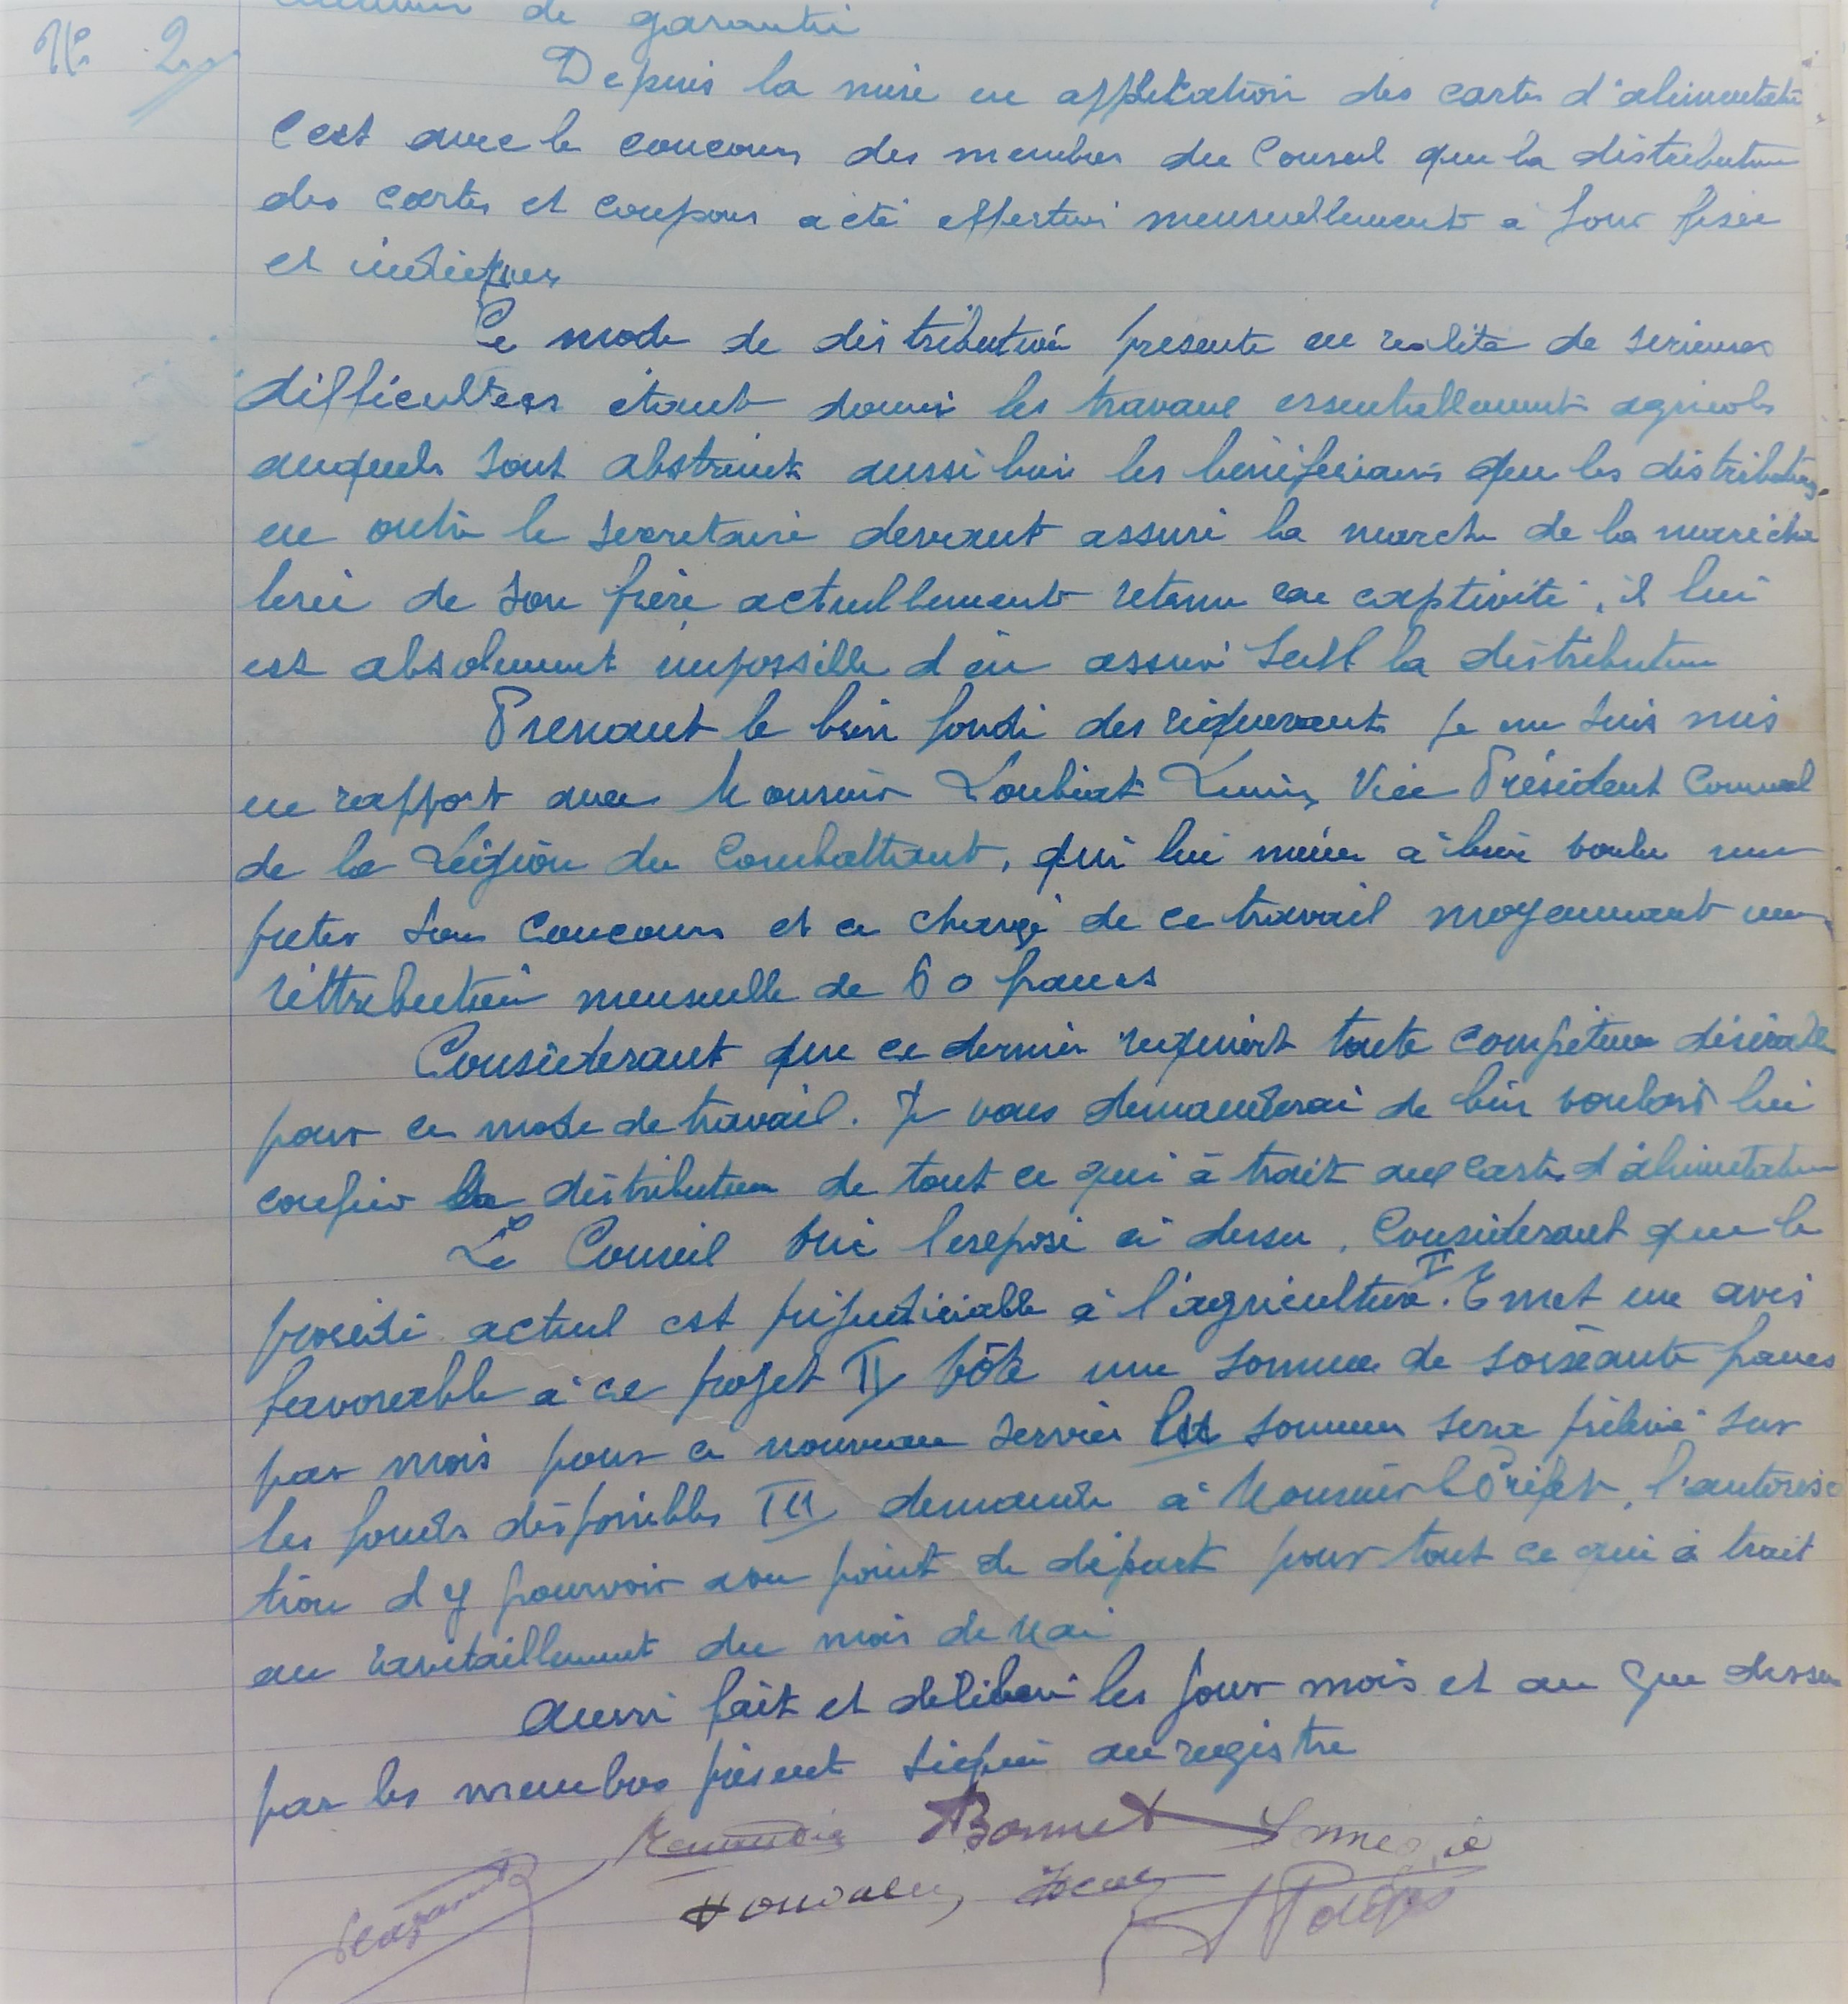 de garantie
N° 2
Depuis la mise en application des cartes d'alimentation
C'est avec le concours des membres du Conseil que la distribution
des cartes et coupons a été effectué mensuellement à jour fixée
et indiques
Ce mode de distribution presente en realité de serieuses
difficultees étant donné les travaux essentiellement agricoles
auxquels sont abstreints aussi bien les bénéficiaires que les distributeurs.
en outre le secretaire devant assuré la marche de la marécha
lerie de son frère actuellement retenu en captivité, il lui
est absolument impossible d'en assuré seul la distribution
Prenant le bien fondé des requerants je me suis mis
en rapport avec Monsieur Loubiat Vice Président Communal
de la Légion du Combattant, qui lui même à bien voulu me
preter son concours et ce chargé de ce travail moyennant une
réttribution mensuelle de 60 francs
Considerant que ce dernier requiert toute compétence désirable
pour ce mode de travail. Je vous demanderai de bien vouloir lui
confier la distribution de tout ce qui à trait aux cartes d'alimentation
Le Conseil oui l'exposé ci dessu, Considerant que le
procédé actuel est préjudiciable à l'agriculture. I Emet un avis
favorable à ce projet II vôte une somme de soixante francs
par mois pour ce nouveau service somme sera prélevé sur
les fonds disponibles III demande à Monsieur le Préfet, l'autorisa
tion d y pourvoir son point de départ pour tout ce qui à trait
au ravitaillement du mois de Mai
Ainsi fait et déliberé les jour mois et an que dessu
par les membres présent signé au registre
Bonnet